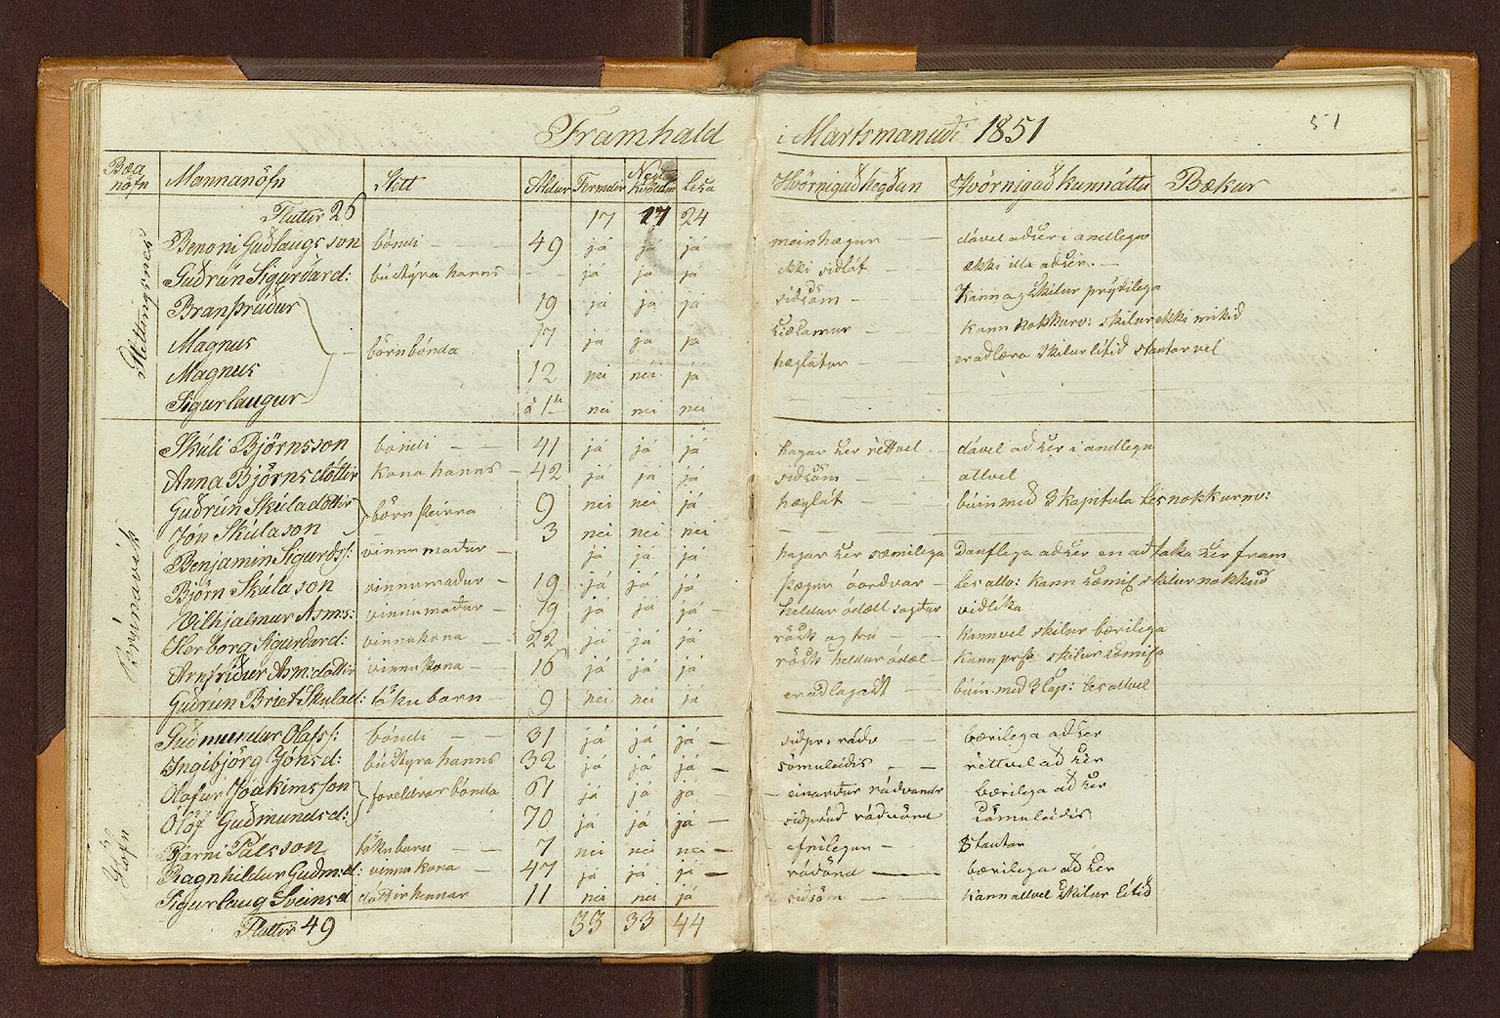 Framhald í Martsmanuði 1851
51
Bæa nöfn Mannanöfn Stett Aldur Fermdir Lesa Hvörnigað hegðan Hvörnigað kunnáttu Bækur
Fluttir 26 17 17 24
Benoni Guðlaugsson bóndi 49 já já já meinhægur dável að sér i andlegu
Guðrún Sigurðard: bústýra hanns já já já ekki siðlát ekki illa að sér
Branþrúður 19 já já já siðsöm kann og skilur prýðilega
Magnus 17 já já já kann nokkurv: skilur ekki mikið
börn bónda
Magnus 12 nei nei já hæglátur er að læra skilur lítið stautar vel
Sigurlaugur á 1u nei nei nei
Skúli Björnsson bóndi 41 já já já hagar ser rettvel dável að ser i andlegu
Anna Björnsdóttir kona hanns 42 já já já siðsöm allvel
Guðrún Skúladóttir 9 nei nei já hæglát búin með 3 kapitula les nokkurnv:
börn þeirra
Jón Skúlason 3 nei nei nei
Benjamin Sigurðss: vinnumaður já já já hagar ser sæmilega Dauflega að ser en að taka ser fram
Björn Skúlason vinnumaður 19 já já já þægur óorðvar les allv: kann sæmil skilur nokkuð
Vilhjalmur Asms: vinnumaður 19 já já já heldur ódæll sagður viðlíka
Herborg Sigurðard: vinnukona 22 já já já rösk og trú kann vel skilur bærilega
Arnfriður Asm:dóttir vinnukona 16 já já já rösk heldur ódæl kann skilur
Guðrún Briet Skulad: tökubarn 9 nei nei ja er að lagast búin með 3 Cap: les allvel
Brúnavík
Guðmundur Olafss: bóndi 31 já já já bærilega að ser
Ingibjörg Jónsd: bústýra hanns 32 já já já sömuleiðis rettvel að ser
Olafur Jóakimsson 61 já já já einarður ráðvandr bærilega að ser
foreldrar bónda
Olöf Guðmundsd: 70 já já já siðprúð ráðvönd sömuleiðis
Bjarni Pálsson tökubarn 7 nei nei nei efnilegur Stautar
Ragnhildur Guðm:d: vinnukona 47 já já já ráðvönd bærilega að ser
Sigurlaug Sveinsd dóttir hennar 11 nei nei já siðsöm kann allvel skilur lítið
Fluttir 49 33 33 44